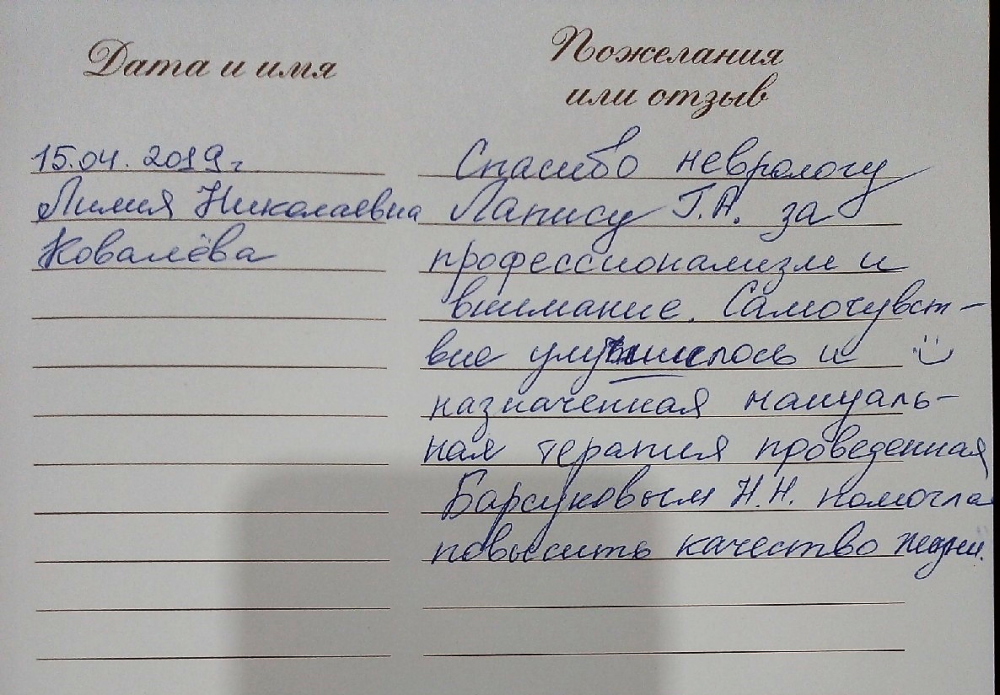 Дата и имя
Пожелания
или отзыв
15.04.2019г
Лилия Николаевна
Ковалёва
Спасибо неврологу
Лапису Г.А. за
профессионализм и
внимание. Самочувст-
вие улучшилось и
назначенная мануаль-
ная терапия проведенная
Барсуковым Н.Н. помогла
повысить качество жизни.